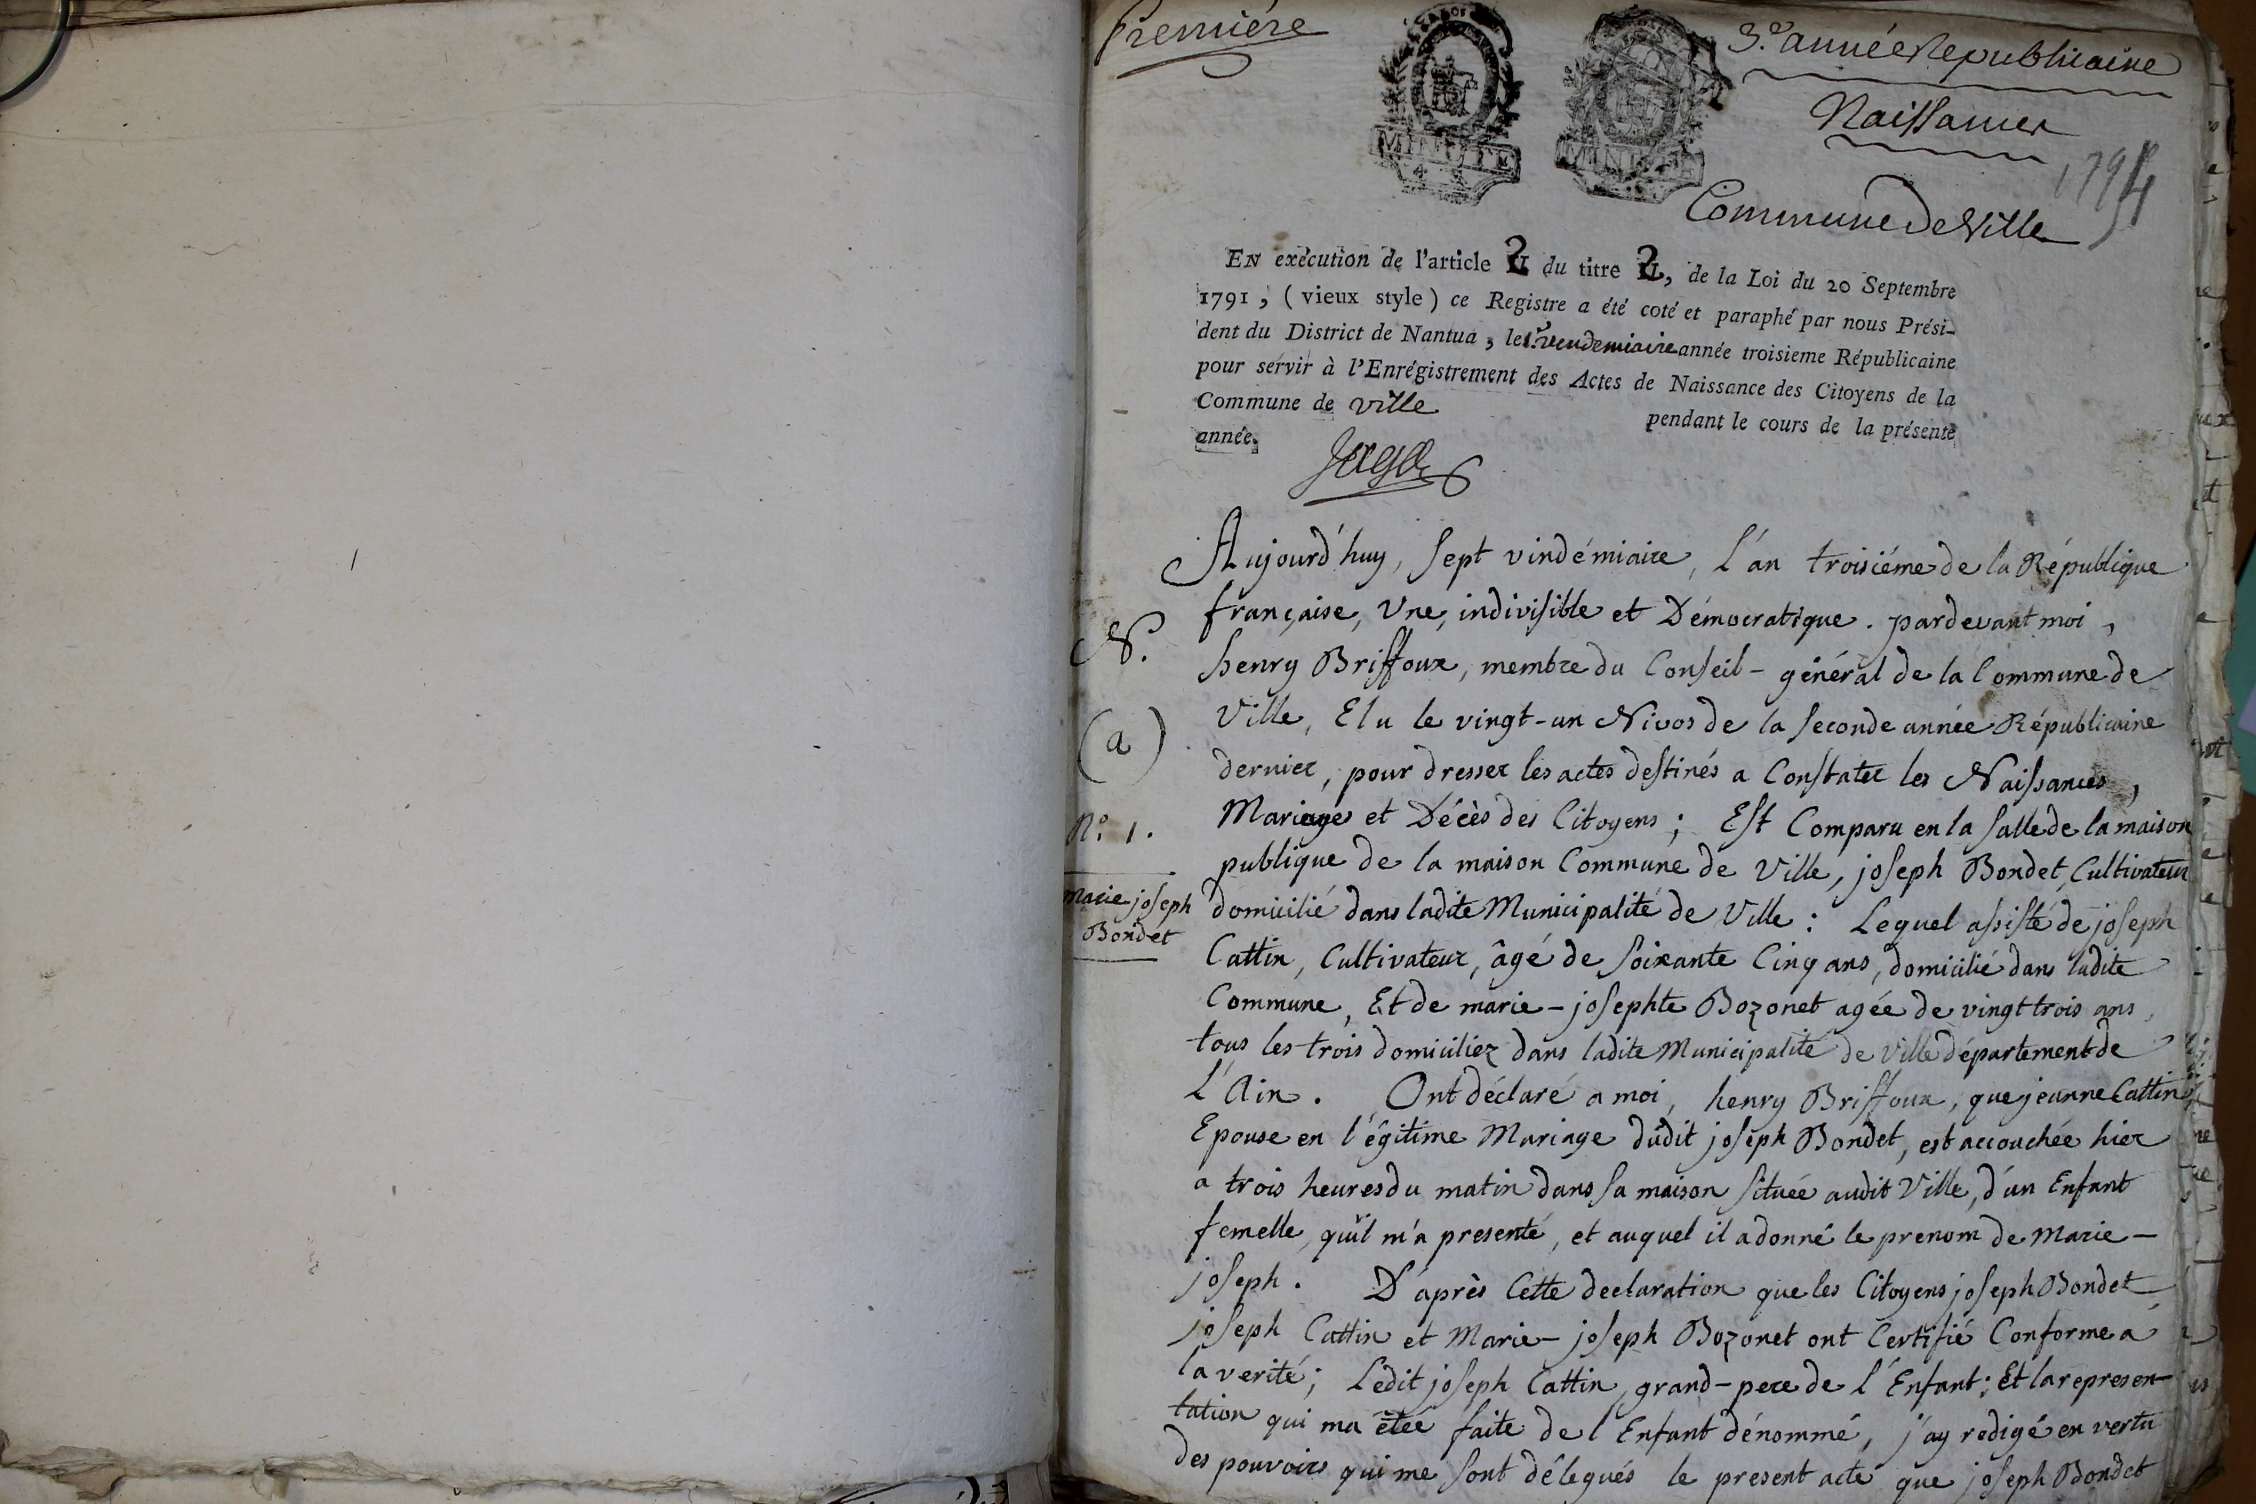 Premiére
3.e année Republicaine
Naissances
1794
Commune de Ville
MINUTE
MINUTE
EN exécution de l'article 2 du titre 2, de la Loi du 20 Septembre
1791, (vieux style) ce Registre a été coté et paraphé par nous Prési-
dent du District de Nantua, le 1.er vendemiaire année troisieme Républicaine
pour servir à l'Enrégistrement des Actes de Naissance des Citoyens de la
Commune de ville pendant le cours de la présente
année.
Aujourd'huy, sept vindémiaire, l'án troisiéme de la République
française, Une, indivisible et Démocratique. pardevant moi,
henry Briffoux, membre du Conseil-général de la Commune de
Ville, Elu le vingt-un Nivos de la seconde année Républicaine
dernier, pour dresser les actes destinés a Constater les Naissances,
Mariages et Décès des Citoyens; Est Comparu en la salle de la maison
publique de la maison Commune de Ville, joseph Bondet, Cultivateur
domicilié dans ladite Municipalité de Ville: Lequel assisté de joseph
Cattin, Cultivateur, âgé de soixante Cinq ans, domicilié dans ladite
Commune, Et de marie-josephte Bozonet agée de vingt trois ans,
tous les trois domiciliez dans ladite Municipalité de Ville département de
L'Ain. Ont déclaré a moi, henry Briffoux, que jeanne Cattin
Epouse en l'égitime Mariage dudit joseph Bondet, est accouchée hier
a trois heures du matin dans sa maison située audit Ville, d'un Enfant
femelle, qu'il m'a presenté, et auquel il a donné le prenom de Marie-
joseph. D'après Cette declaration que les Citoyens joseph Bondet
joseph Cattin et Marie-joseph Bozonet ont Certifié Conforme a
la verité; Ledit joseph Cattin, grand-pere de l'Enfant; Et la represen-
tation qui ma étée faite de l'Enfant dénommé, j'ay redigé en vertu
des pouvoirs qui me sont délegués le present acte que joseph Bondet
N.
(a)
N.o 1.
marie joseph
Bondet